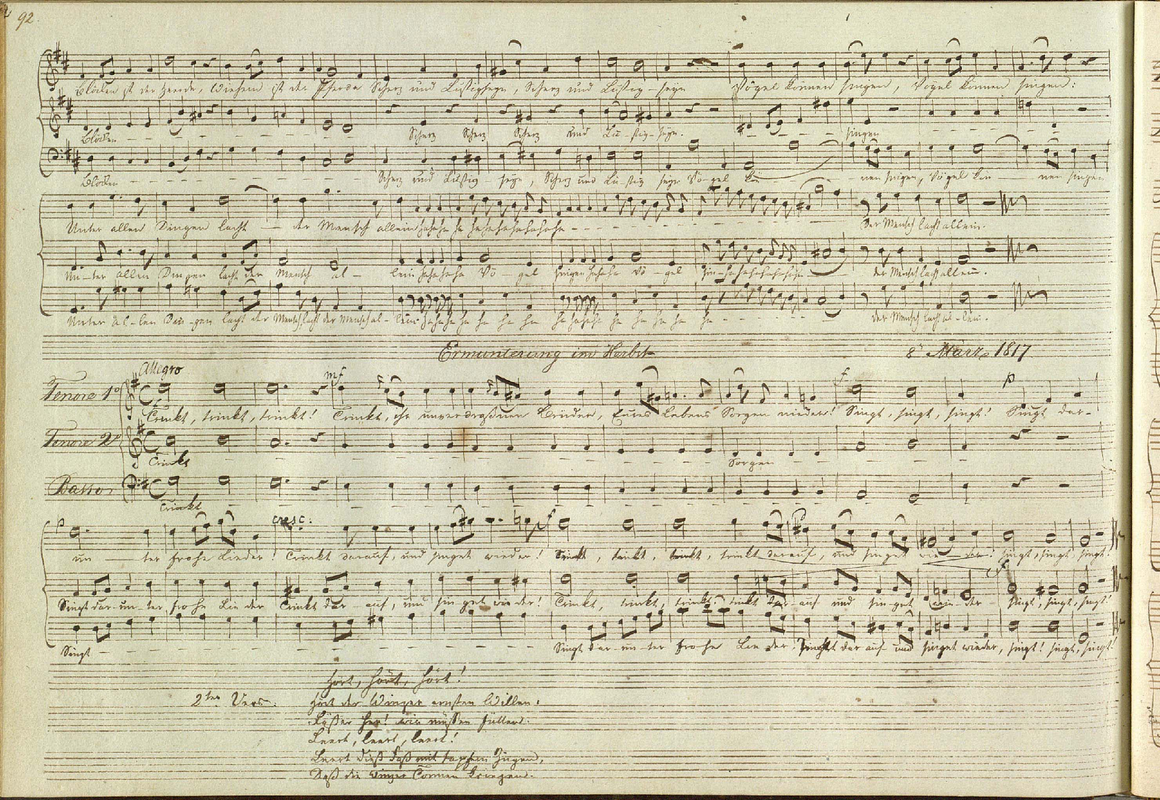 92.
Blöken ist der Heerde, Wiehern ist der Pferde Scherz und Lustgepfeife, Scherz und Lustig-
Vögel können singen, Vögel können singen:
Blöken
Scherz Scherz Scherz und Lu-stig-
singen
Blöken
Scherz und Lustig Scherz und Lu-stig Vögel kön- nen singen, Vögel kön- nen singen.
Unter allen Dingen lacht der Mensch allein hahaha ha hahahahahaha
Der Mensch lacht allein.
Un-ter allen Dingen lacht der Mensch al- lein hahahaha Vö gel singen hahaha Vö-gel
der Mensch lacht allein.
Unter al-len Din-gen lacht der Mensch lacht der Mensch al-lein hahahaha ha ha ha ha hahahaha ha ha ha ha ha
der Mensch lacht al-lein.
Ermunterung im Herbst
8 März 1817
Allegro
mf
f
p
Tenore 1º
Trinkt, trinkt, trinkt! Trinkt, ihr unverdroßnen Brüder, Lebens Sorgen nieder! Singt, singt, singt! Singt dar-
Tenore 2º
Trinkt
Sorgen
Basso
Trinkt
p
cresc:
f
un - ter frohe Lieder! Trinkt darauf, und singet wieder! Trinkt, trinkt, trinkt, trinkt darauf, und singet wie - der! singt, singt, singt!
Singt dar-un-ter fro he Lie der Trinkt dar-auf, und sin-get wieder! Trinkt, trinkt, trinkt, trinkt dar-auf und sin-get wie-der singt, singt, singt!
Singt
Singt dar-un-ter fro-he Lie der! Trinkt dar auf und singet wieder, singt! singt, singt
Hört, hört, hört!
2ter Vers.
Hört der Winzer ernsten Willen:
Fäßer her! wir müßen füllen.
Leert, leert, leert!
Leert dieß Faß mit tapfern Zügen,
Daß die Winzer Tonnen kriegen.